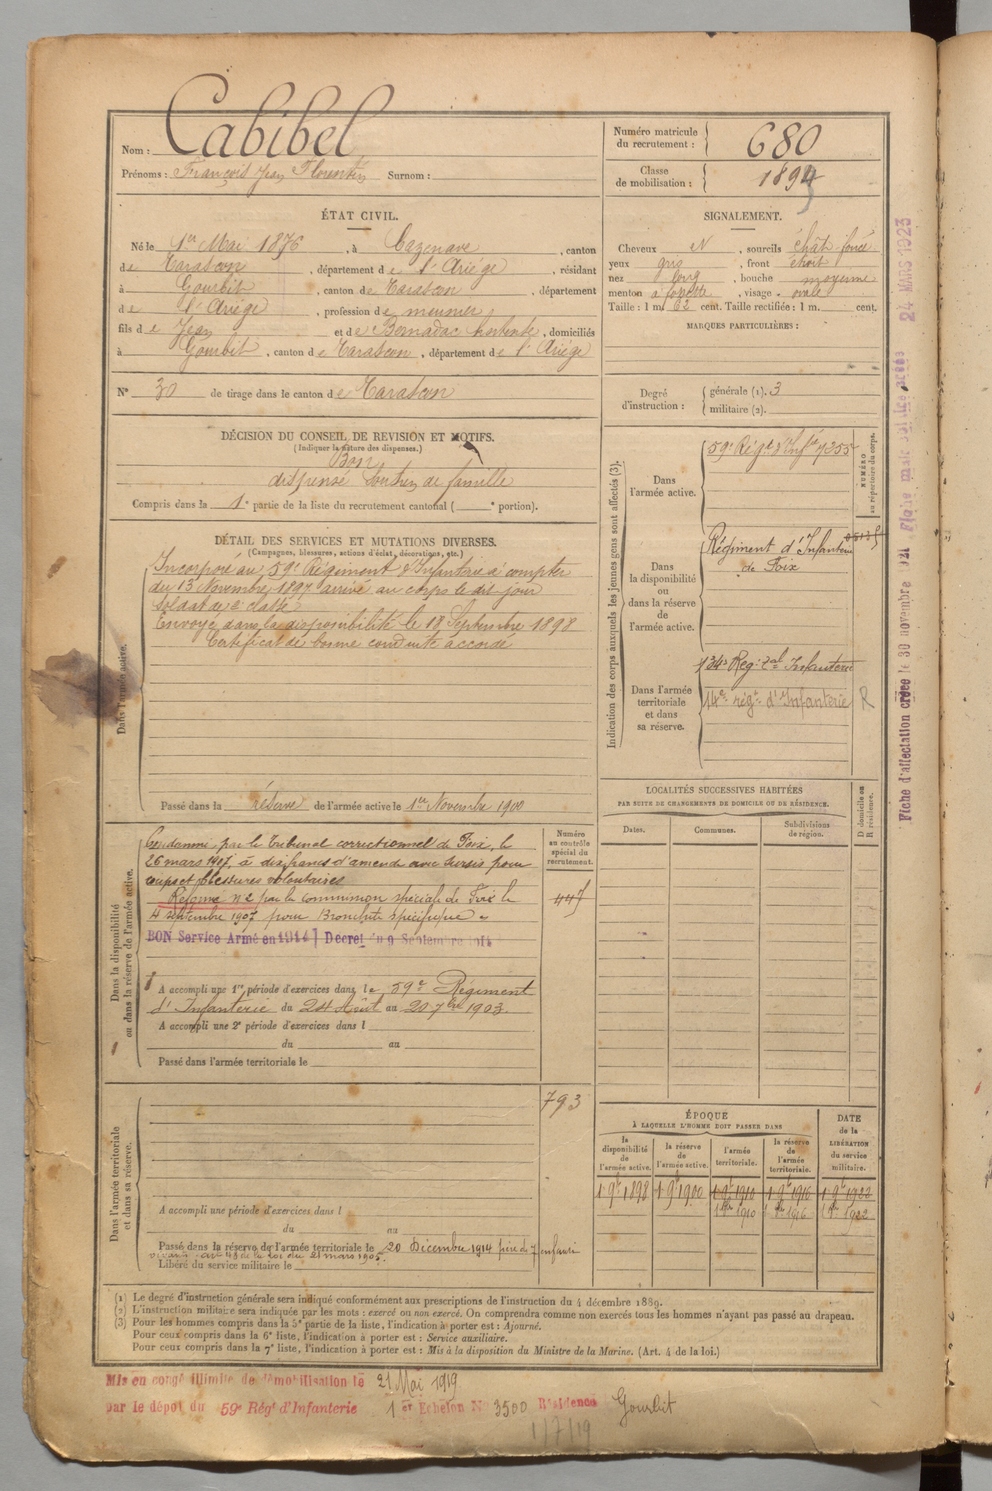 Nom : Cabibel
Prénoms : François Jean Florentin Surnom :
Numéro matricule du recrutement : 680
Classe de mobilisation : 1894
ÉTAT CIVIL.
Né le 1er Mai 1876, à Cazenave, canton
de Tarascon, département de l'Ariége, résidant
à Gourbit, canton de Tarascon, département
de l'Ariége, profession de meunier
fils de Jean et de Bernadac hortense, domiciliés
à Gourbit, canton de Tarascon, département de l'Ariége
SIGNALEMENT.
Cheveux N, sourcils chât-foncé
yeux gris, front étroit
nez long, bouche moyenne
menton à fossette, visage ovale
Taille : 1 m. 62 cent. Taille rectifiée : 1 m. cent.
MARQUES PARTICULIÈRES :
N° 30 de tirage dans le canton de Tarascon
Degré d'instruction : générale (1). 3
militaire (2).
DÉCISION DU CONSEIL DE REVISION ET MOTIFS.
(Indiquer la nature des dispenses.)
Bon
dispensé soutien de famille
Compris dans la 1e partie de la liste du recrutement cantonal ( e portion).
DÉTAIL DES SERVICES ET MUTATIONS DIVERSES.
(Campagnes, blessures, actions d'éclat, décorations, etc.)
Dans l'armée active.
Incorporé au 59e Régiment d'Infanterie à compter
du 13 Novembre 1897 arrivé au corps le dit jour
soldat de 2e classe
Envoyé dans la disponibilité le 18 Septembre 1898
Certificat de bonne conduite accordé
Passé dans la réserve de l'armée active le 1er Novembre 1900
Indication des corps auxquels les jeunes gens sont affectés (3).
NUMÉRO au répertoire du corps.
Dans l'armée active.
59e Régt d'Infie 7255
Dans la disponibilité ou dans la réserve de l'armée active.
Régiment d'Infanterie
de Foix
Dans l'armée territoriale et dans sa réserve.
134e Reg. tal Infanterie
14e régt d'Infanterie R
Dans la disponibilité ou dans la réserve de l'armée active.
Numéro au contrôle spécial du recrutement.
Condamné par le Tribunal correctionnel de Foix, le
26 mars 1907 à dix francs d'amende avec sursis pour
coups et blessures volontaires
Réformé n°2 par la commission spéciale de Foix le
4 septembre 1907 pour Bronchite spécifique
BON Service Armé en 1914] Decret du 9 Septembre 1914
A accompli une 1re période d'exercices dans le 59e Régiment
d'Infanterie du 24 Août au 20 7bre 1903.
A accompli une 2e période d'exercices dans l
du au
Passé dans l'armée territoriale le
LOCALITÉS SUCCESSIVES HABITÉES
PAR SUITE DE CHANGEMENTS DE DOMICILE OU DE RÉSIDENCE.
Dates. Communes. Subdivisions de région. D domicile ou R résidence.
Dans l'armée territoriale et dans sa réserve.
793
A accompli une période d'exercices dans l
du au
Passé dans la réserve de l'armée territoriale le 20 Décembre 1914 père de 7 enfants
vivants art 48 de la loi du 21 mars 1905
Libéré du service militaire le
ÉPOQUE
À LAQUELLE L'HOMME DOIT PASSER DANS
la disponibilité de l'armée active. la réserve de l'armée active. l'armée territoriale. la réserve de l'armée territoriale.
DATE de la LIBÉRATION du service militaire.
1 9e 1898 1 9e 1900 1 9e 1910 1 9e 1916 1 9e 1922
1910 1916 1922
(1) Le degré d'instruction générale sera indiqué conformément aux prescriptions de l'instruction du 4 décembre 1889.
(2) L'instruction militaire sera indiquée par les mots : exercé ou non exercé. On comprendra comme non exercés tous les hommes n'ayant pas passé au drapeau.
(3) Pour les hommes compris dans la 5e partie de la liste, l'indication à porter est : Ajourné.
Pour ceux compris dans la 6e liste, l'indication à porter est : Service auxiliaire.
Pour ceux compris dans la 7e liste, l'indication à porter est : Mis à la disposition du Ministre de la Marine. (Art. 4 de la loi.)
Mis en congé illimité de démobilisation le 21 Mai 1919
par le dépôt du 59e Régt d'Infanterie 1er Echelon N° 3500 Résidence Gourbit
1/7/19
Fiche d'affectation créée le 30 novembre 1921
Fiche mat 24 MARS 1923